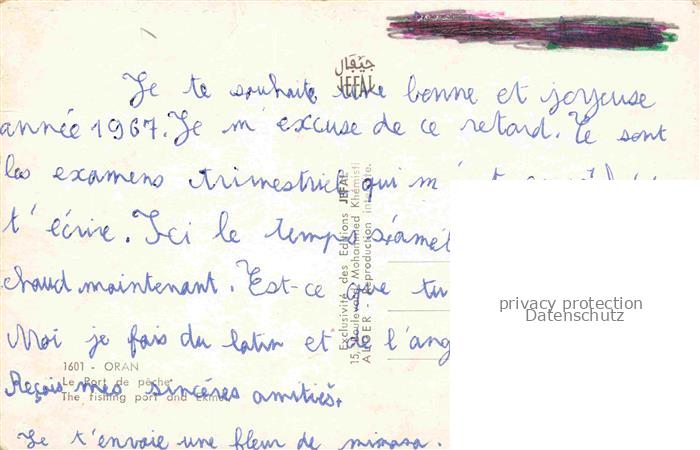 جيفال
JEFAL
Je te souhaite une bonne et joyeuse
année 1967. Je m'excuse de ce retard. Ce sont
les examens trimestriels qui m'
t'écrire. Ici le temps
chaud maintenant. Est-ce que tu
Moi je fais du latin et de l'ang
Reçois mes sincères amitiés.
Je t'envoie une fleur de mimosa.
1601 - ORAN
Le Port de pêche
The fishing port and
Exclusivité des Editions JEFAL
15, Boulevard Mohammed Khémisti
ALGER - Reproduction interdite.
privacy protection
Datenschutz